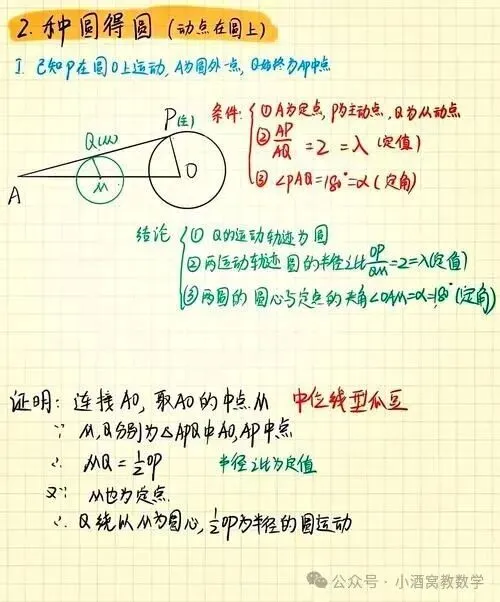 2. 种圆得圆 (动点在圆上)
I. 已知P在圆O上运动, A为圆外一点, Q始终为AP中点
P(主)
Q(从)
M
O
A
条件: ① A为定点, P为主动点, Q为从动点
② AP/AQ = 2 = λ (定值)
③ ∠PAQ=180°=α (定角)
结论 ① Q的运动轨迹为圆
② 两运动轨迹圆的半径之比 OP/QM = 2 = λ(定值)
③ 两圆的圆心与定点的夹角∠OAM=α=180°(定角)
证明: 连接AO, 取AO的中点M 中位线型瓜豆
∵ M,Q分别为△APO中AO,AP中点
∴ MQ=½OP 半径之比为定值
又∵ M也为定点
∴ Q绕以M为圆心,½OP为半径的圆运动
公众号·小酒窝教数学